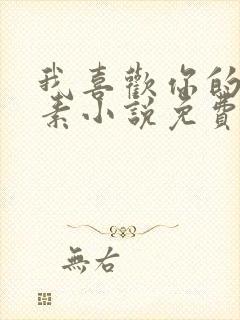 我喜歡你的
素小說免費
無右